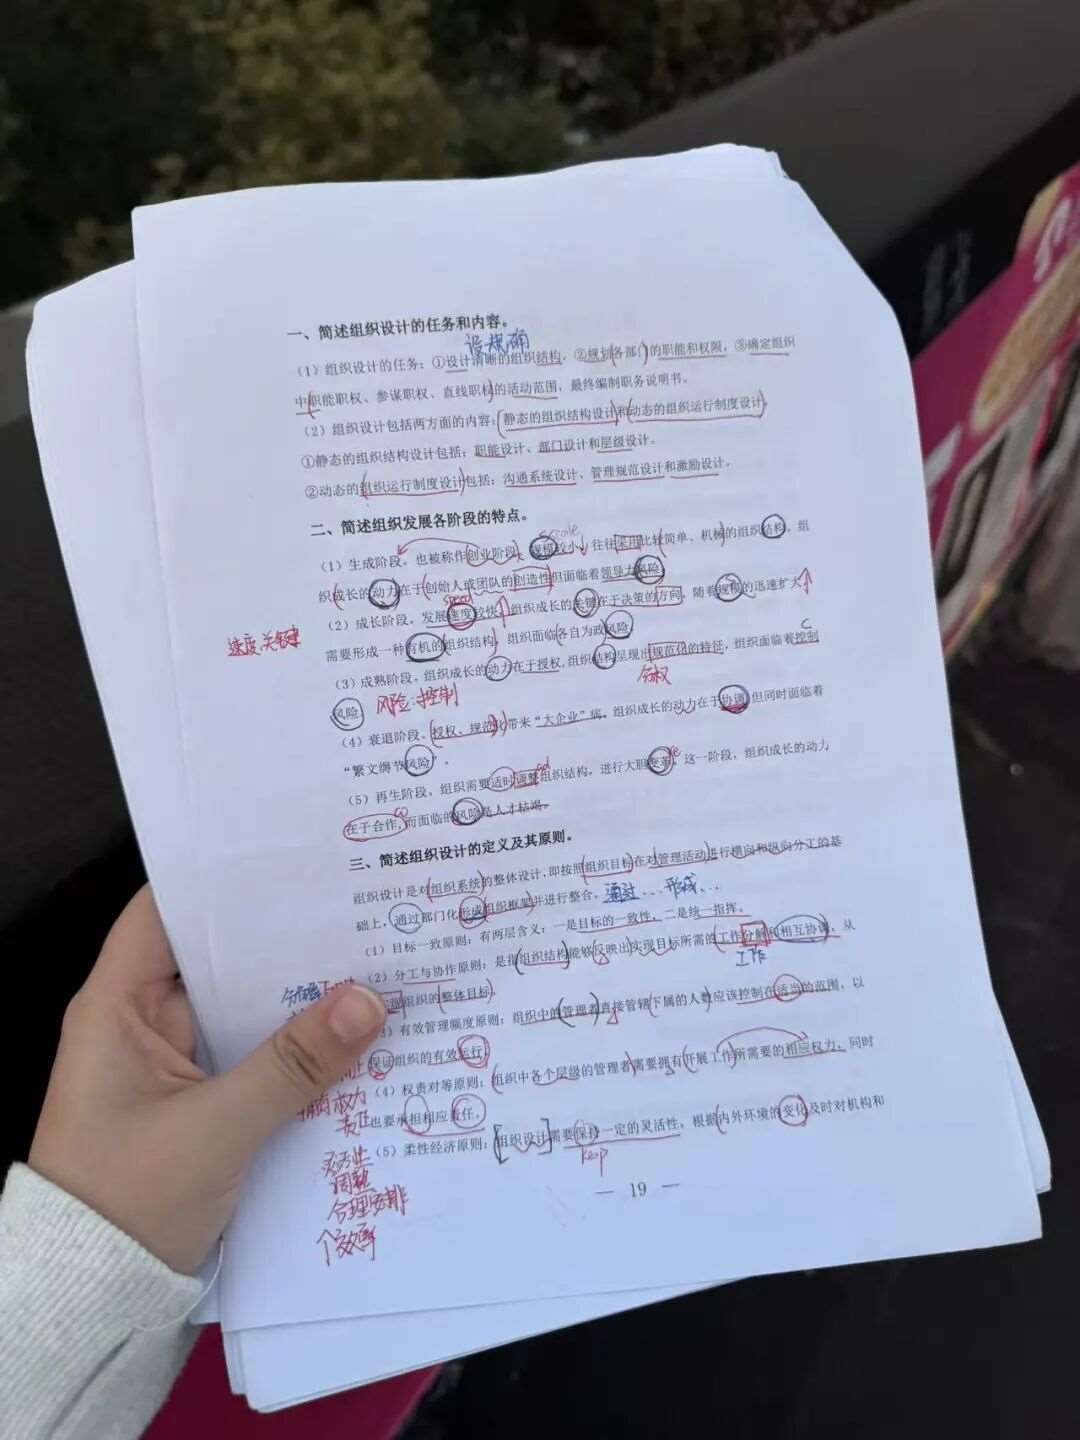 一、简述组织设计的任务和内容。
设 规 确
（1）组织设计的任务：①设计清晰的组织结构，②规划各部门的职能和权限，③确定组织
中职能职权、参谋职权、直线职权的活动范围，最终编制职务说明书。
（2）组织设计包括两方面的内容：静态的组织结构设计和动态的组织运行制度设计。
①静态的组织结构设计包括：职能设计、部门设计和层级设计。
②动态的组织运行制度设计包括：沟通系统设计、管理规范设计和激励设计。
二、简述组织发展各阶段的特点。
scale
（1）生成阶段，也被称作创业阶段，规模较小，往往采用比较简单、机械的组织结构，组
织成长的动力在于创始人或团队的创造性但面临着领导力风险
speed
（2）成长阶段，发展速度较快，组织成长的关键在于决策的方向，随着规模的迅速扩大
速度，关键
需要形成一种有机的组织结构，组织面临各自为政风险
C
（3）成熟阶段，组织成长的动力在于授权，组织结构呈现出规范化的特征，组织面临着控制
风险
风险：控制
分权
（4）衰退阶段，授权、规范化带来“大企业”病。组织成长的动力在于协调，但同时面临着
“繁文缛节风险”。
（5）再生阶段，组织需要适时调整组织结构，进行大胆变革，这一阶段，组织成长的动力
co
在于合作，而面临的风险是人才枯竭。
三、简述组织设计的定义及其原则。
组织设计是对组织系统的整体设计，即按照组织目标在对管理活动进行横向和纵向分工的基
础上，通过部门化形成组织框架并进行整合。
通过...形成...
（1）目标一致原则：有两层含义：一是目标的一致性，二是统一指挥。
（2）分工与协作原则：是指组织结构能够反映出实现目标所需的工作分解和相互协调，从
工作
组织的整体目标。
）有效管理幅度原则：组织中的管理者直接管辖下属的人数应该控制在适当的范围，以
保证组织的有效运行。
（4）权责对等原则：组织中各个层级的管理者需要拥有开展工作所需要的相应权力，同时
拥有权力
责任
也要承担相应责任。
（5）柔性经济原则：组织设计需要保持一定的灵活性，根据内外环境的变化及时对机构和
keep
灵活性
调整
合理安排
个效率
— 19 —